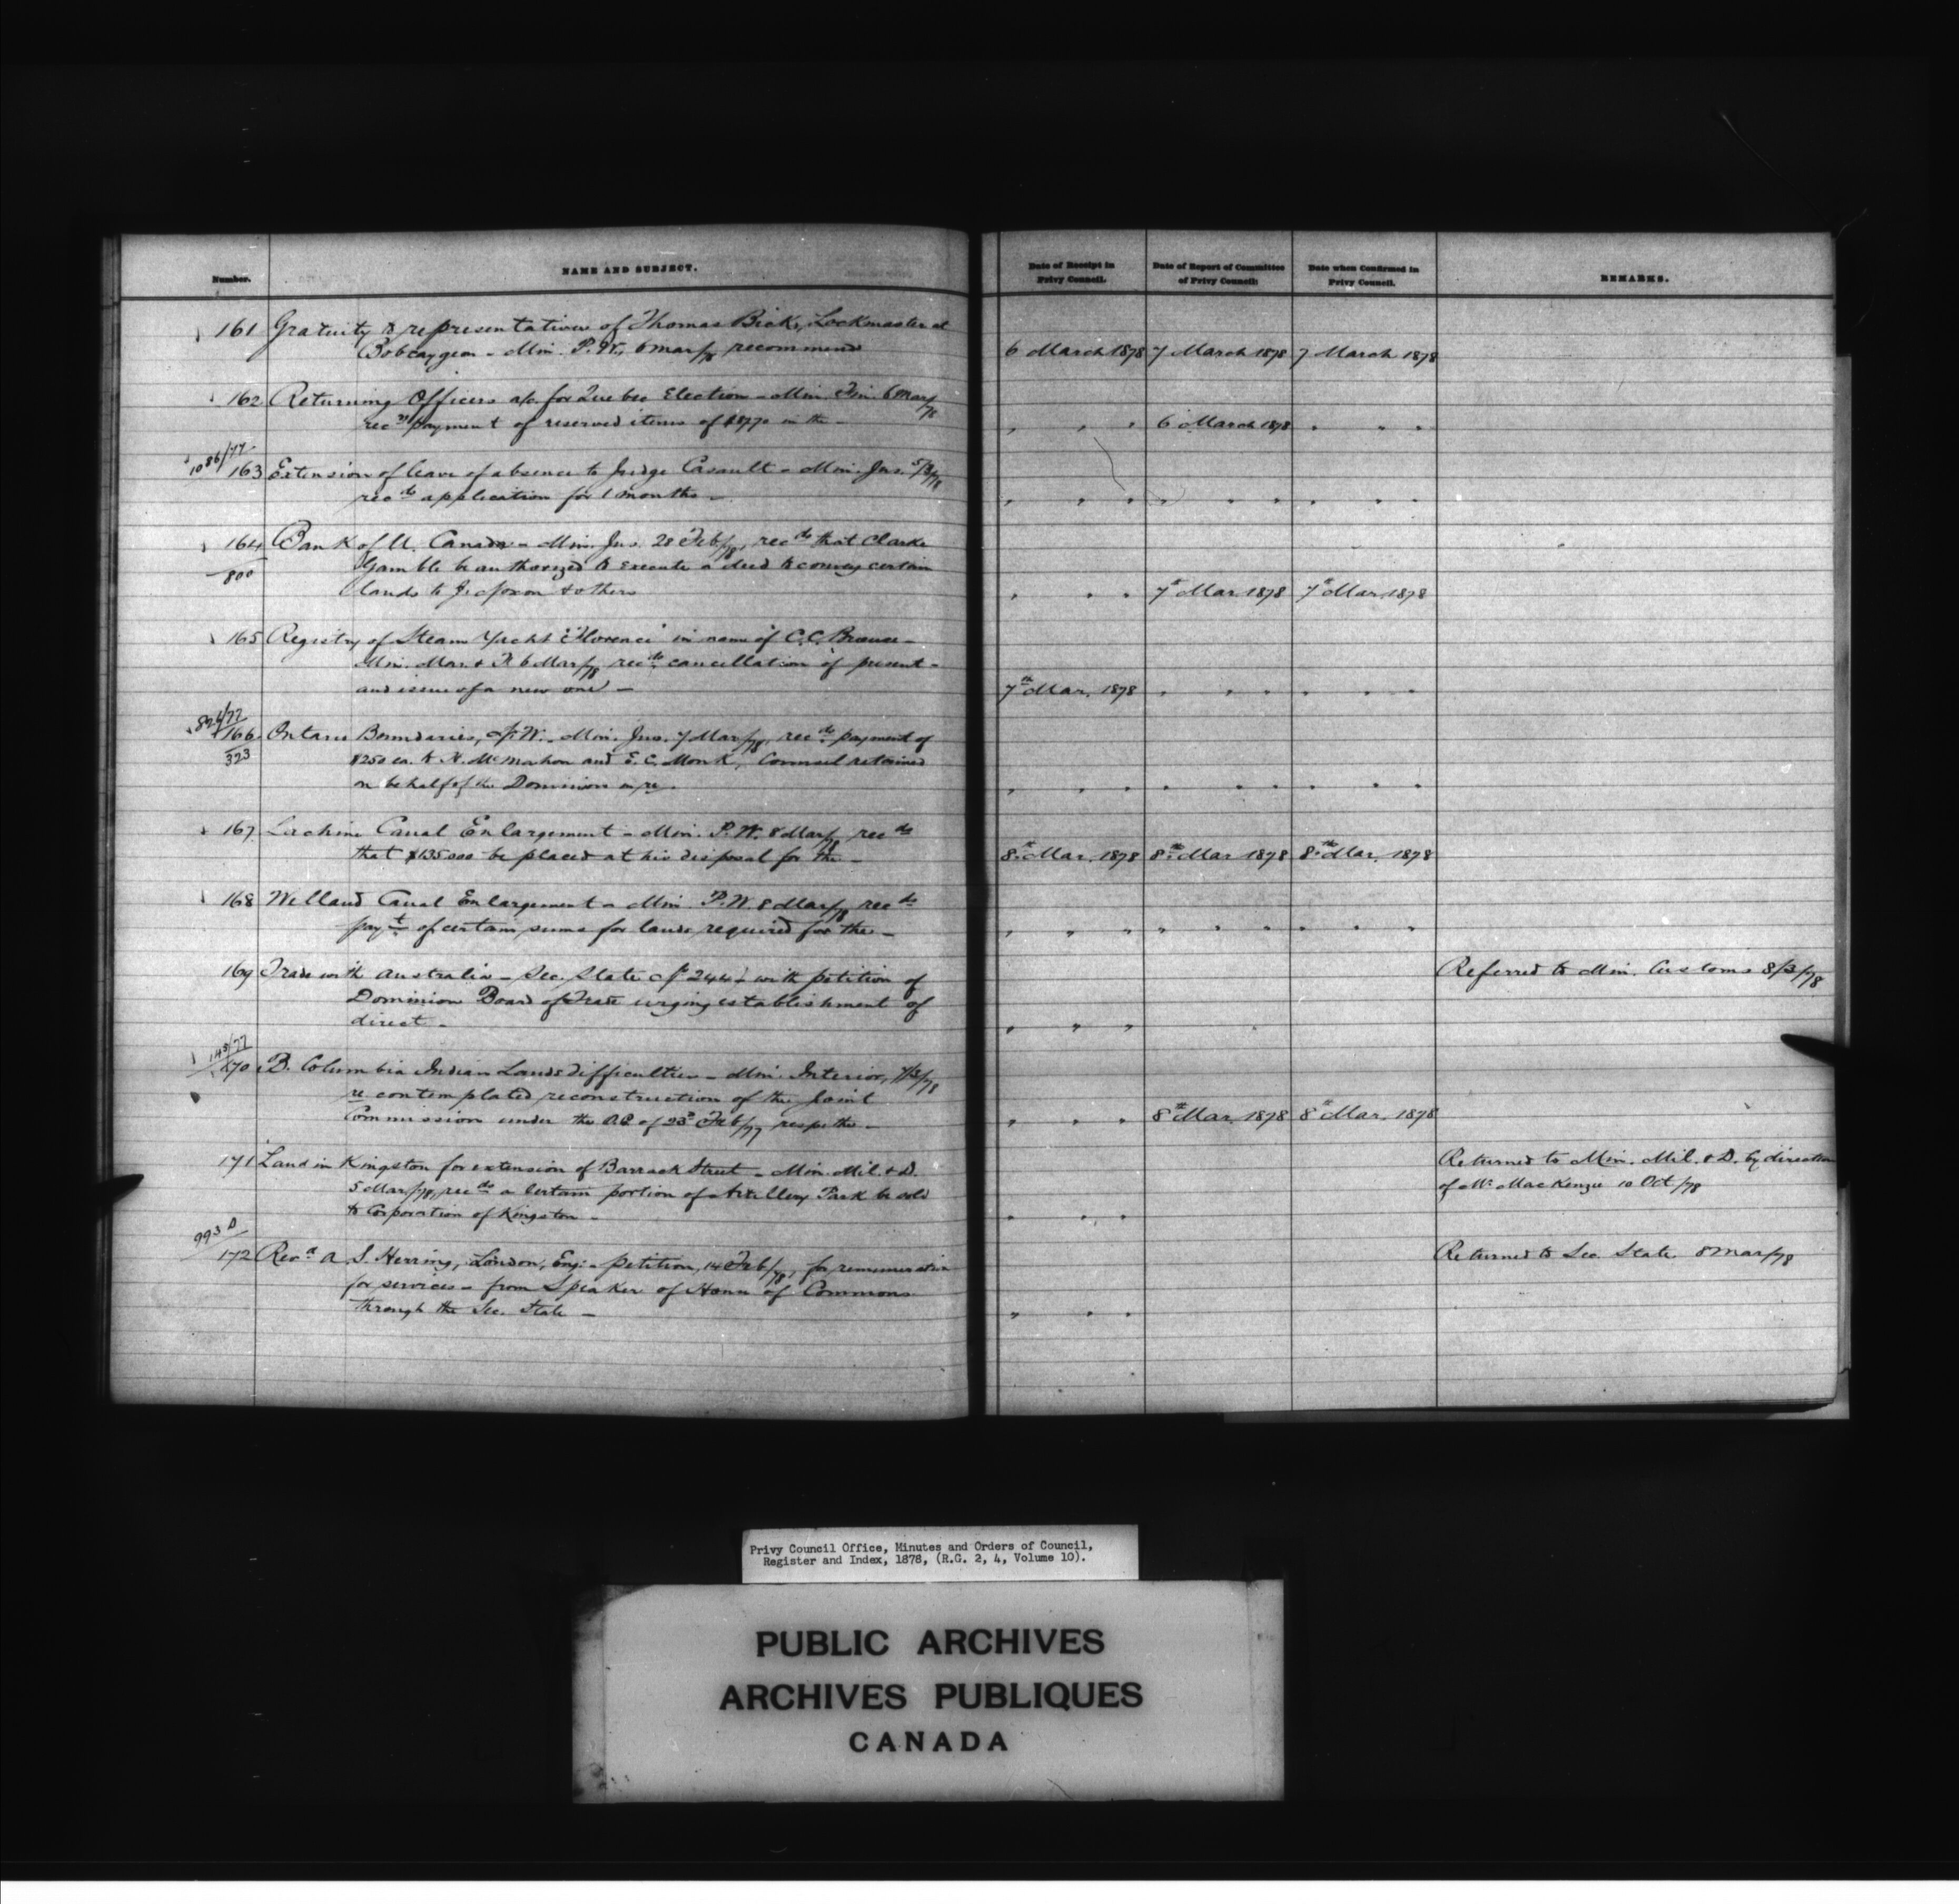 Number.
NAME AND SUBJECT.
Date of Receipt in Privy Council.
Date of Report of Committee of Privy Council.
Date when Confirmed in Privy Council.
REMARKS.
161 Gratuity to representatives of Thomas Bick, Lockmaster at
Bobcaygeon - Min. P.W. 6 Mar/78 recommends
6 March 1878 7 March 1878 7 March 1878
162 Returning Officers a/c. for Quebec Election - Min. Fin. 6 Mar/78
payment of reserved items of in the -
" " " 6 March 1878 " " "
1086/77
163 Extension of leave of absence to Judge Casault - Min. Jus. 5/3/78
recds application for months -
" " " " " " " " "
164 Bank of U. Canada - Min. Jus. 28 Feb/78, recds that Clarke
800
Gamble be authorized to execute a deed to convey certain
lands to & others
" " " 7th Mar 1878 7th Mar 1878
165 Registry of Steam Yacht "Florence" in name of C.C.
Min. Mar. & F. 6 Mar/78 recds cancellation of present -
and issue of a new one -
7th Mar. 1878 " " " " " "
166 Ontario Boundaries, N.W. - Min. Jus. 7 Mar/78, recds payment of
323
$250 ea. to McMahon and E.C. Monk, Counsel retained
on behalf of the Dominion in re.
" " " " " " " " "
167 Lachine Canal Enlargement - Min. P.W. 8 Mar/78 recds
that $135000 be placed at his disposal for the -
8th Mar. 1878 8th Mar 1878 8th Mar. 1878
168 Welland Canal Enlargement - Min. P.W. 8 Mar/78 recds
payt. of certain sums for lands required for the -
" " " " " " " " "
169 Trade with Australia - Sec. State 244 with petition of
Referred to Min. Customs 8/3/78
Dominion Board of Trade urging establishment of
direct -
" " "
145/77
170 B. Columbia Indian Lands difficulties - Min. Interior, 7/3/78
re contemplated reconstruction of the Joint
Commission under the OC of 23d Feb/77 respg the -
" " " 8th Mar. 1878 8th Mar. 1878
171 Land in Kingston for extension of Barrack Street - Min. Mil. & D.
Returned to Min. Mil. & D. by direction
5 Mar/78, recds a certain portion of Artillery Park be sold
of Mr. MacKenzie 10 Oct/78
to Corporation of Kingston -
" " "
993 D
172 Revd. A.S. Herring, London, Eng. - petition, 14 Feb/78, for remuneration
Returned to Sec. State 8 Mar/78
for services - from Speaker of House of Commons
through the Sec. State -
" " "
Privy Council Office, Minutes and Orders of Council,
Register and Index, 1878, (R.G. 2, 4, Volume 10).
PUBLIC ARCHIVES
ARCHIVES PUBLIQUES
CANADA